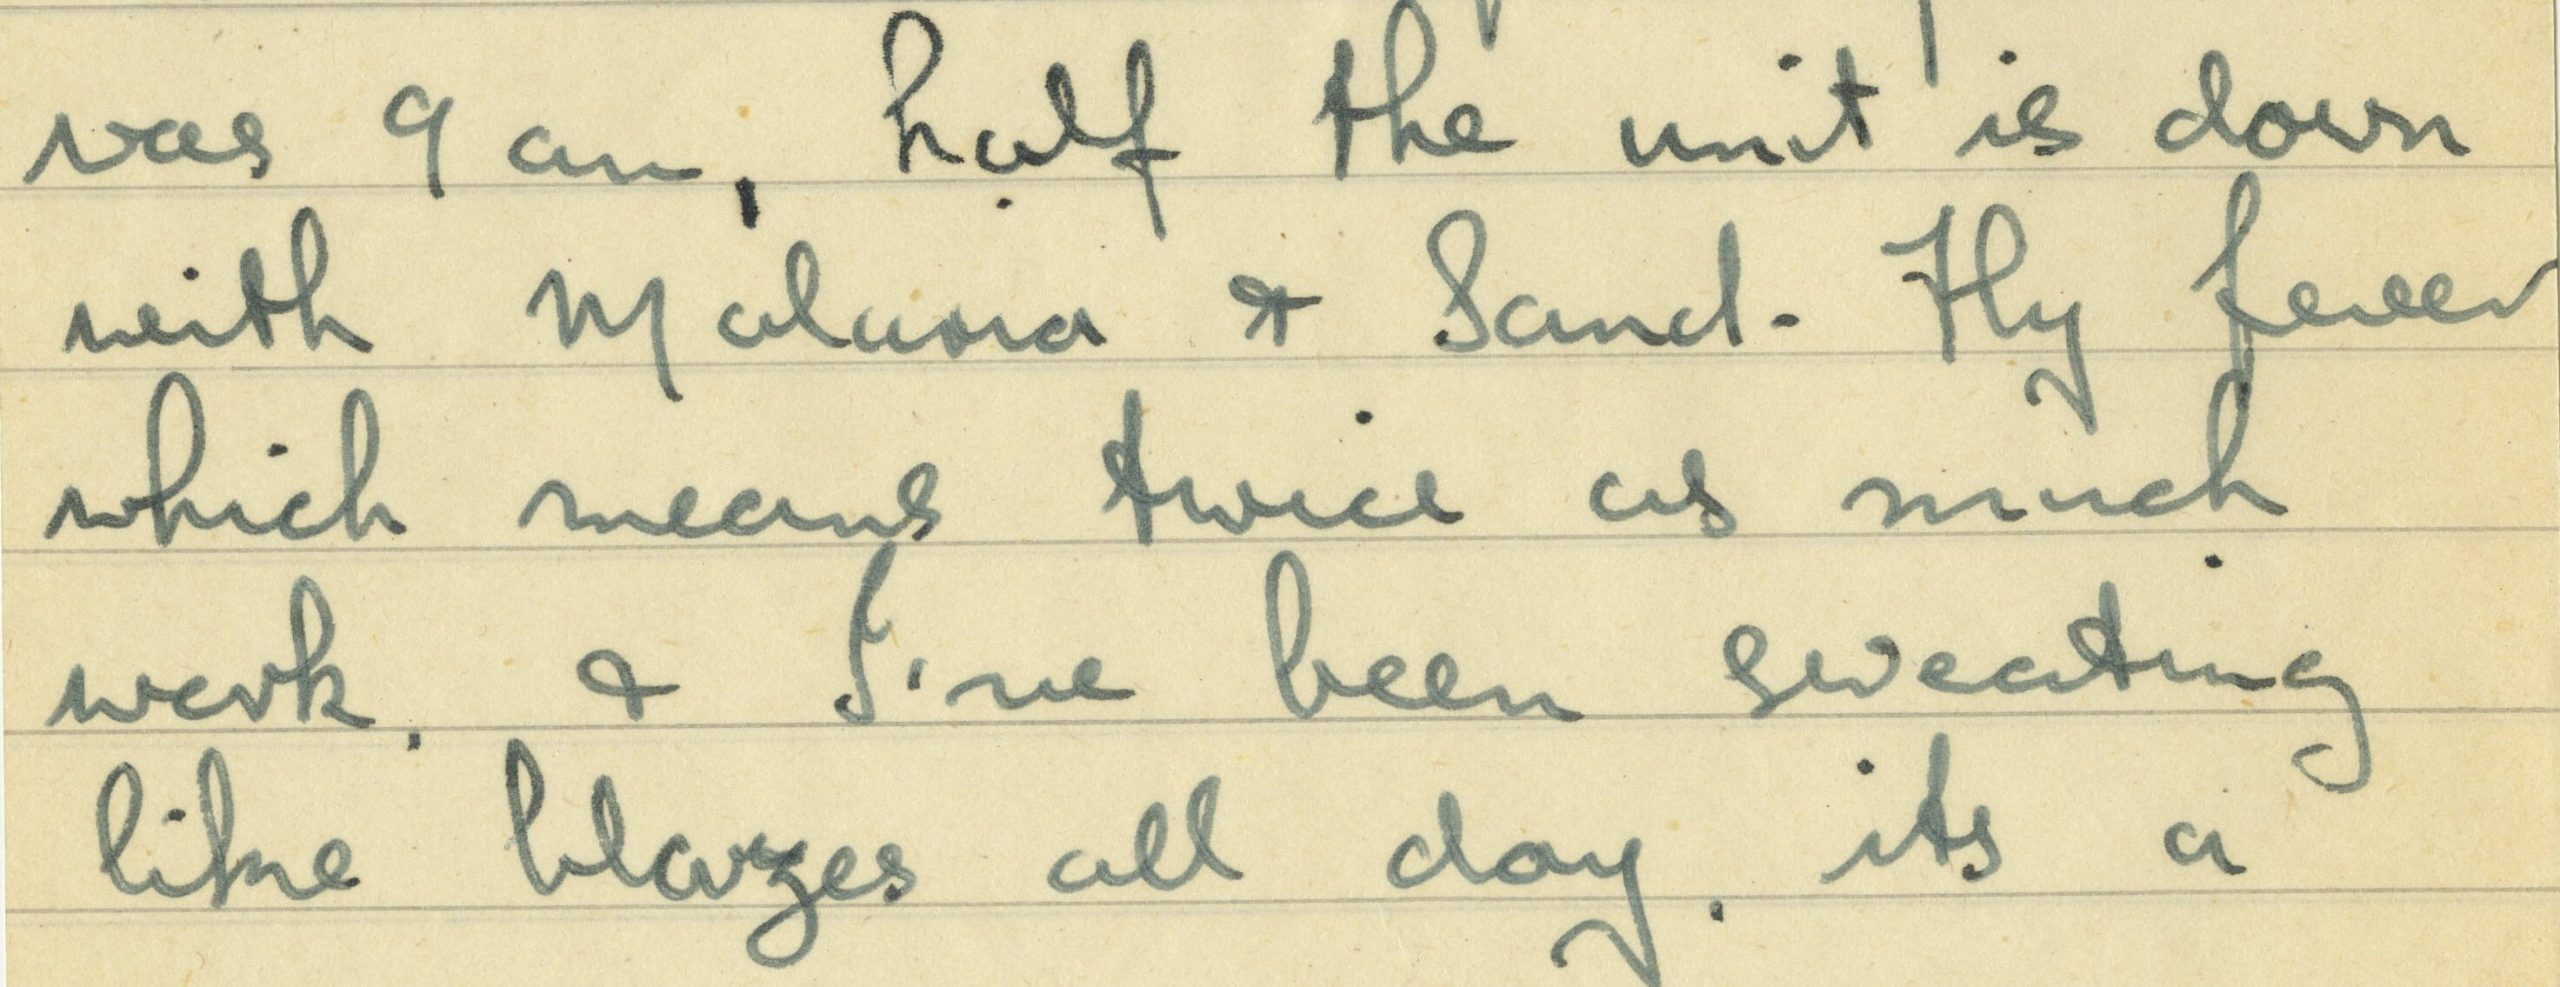 was 9 am, half the unit is down
with Malaria & Sand-Fly fever
which means twice as much
work, & I've been sweating
like blazes all day. its a